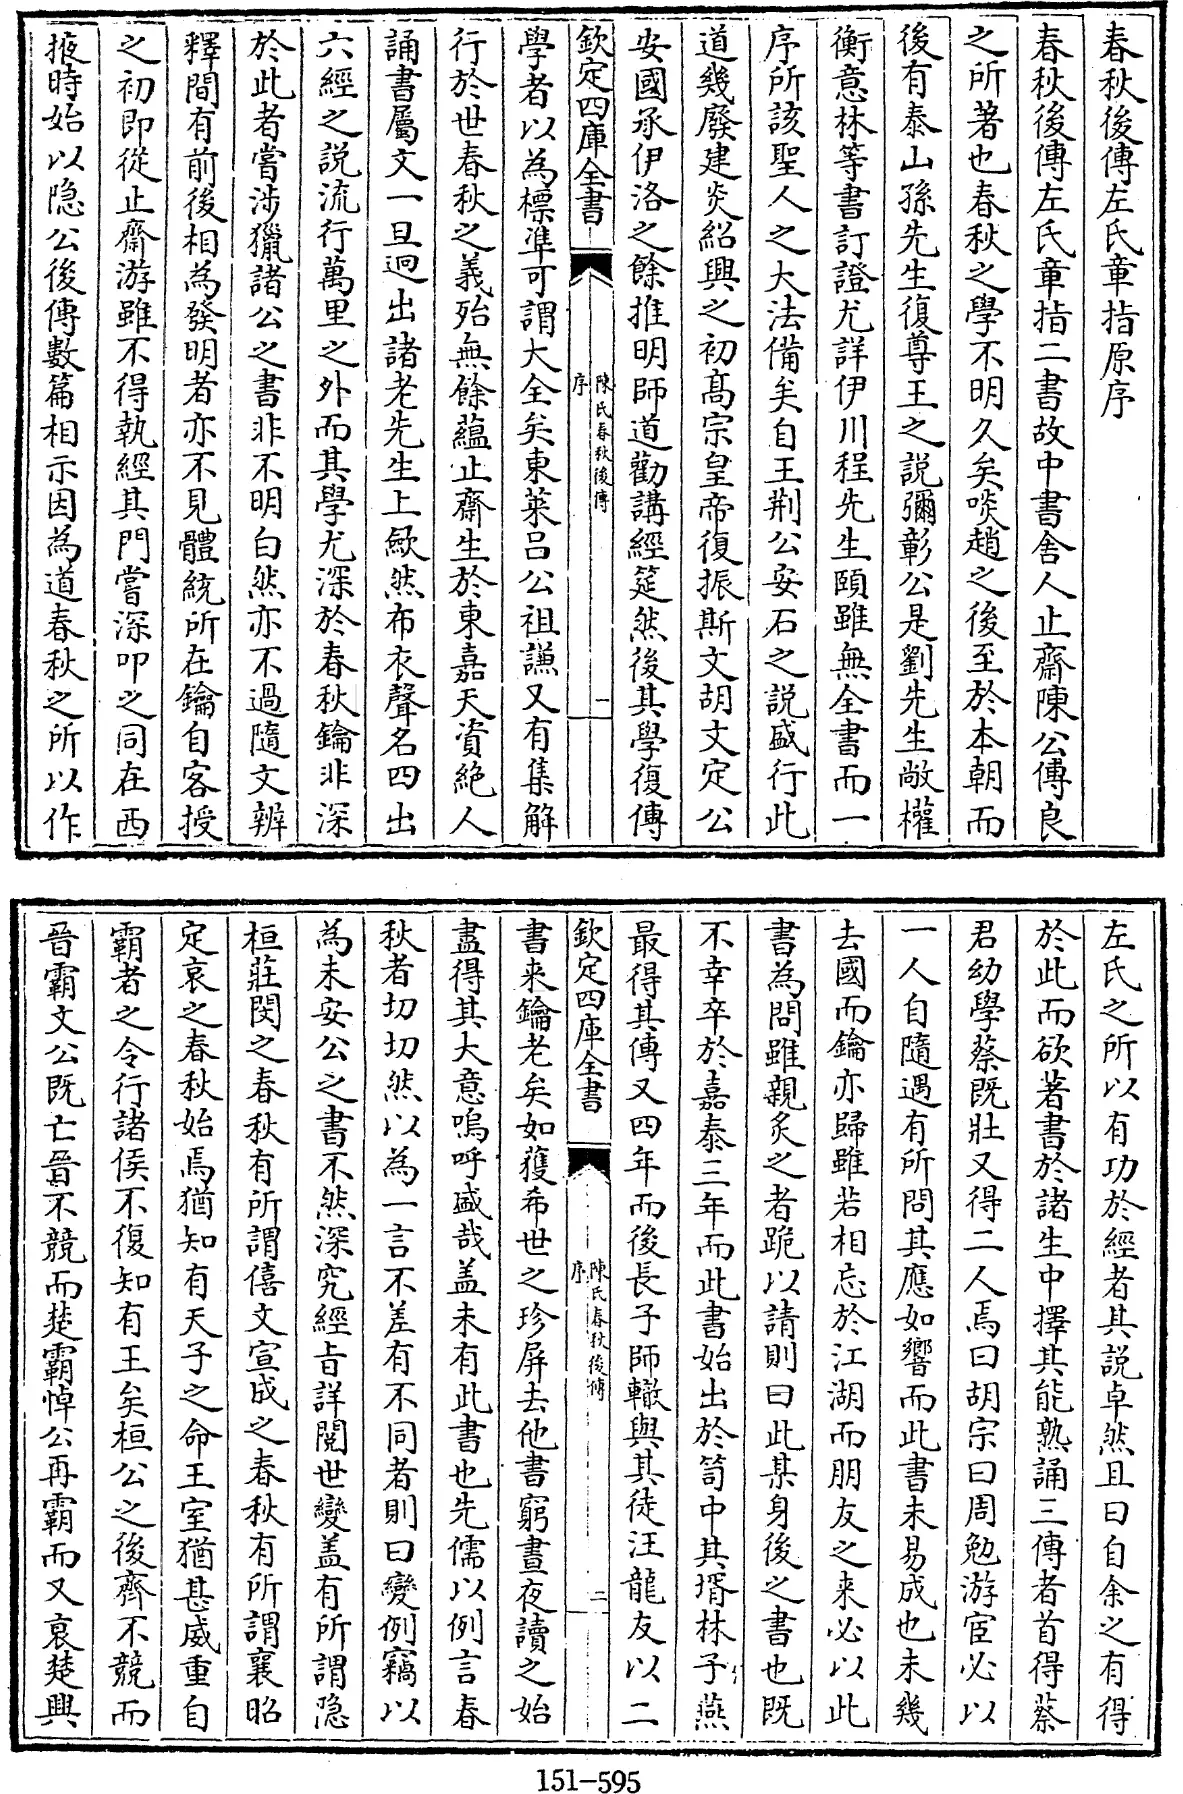 春秋後傳左氏章指原序
春秋後傳左氏章指二書故中書舍人止齋陳公傅良
之所著也春秋之學不明久矣啖趙之後至於本朝而
後有泰山孫先生復尊王之說彌彰公是劉先生敞權
衡意林等書訂證尤詳伊川程先生頤雖無全書而一
序所該聖人之大法備矣自王荆公安石之説盛行此
道幾廢建炎紹興之初髙宗皇帝復振斯文胡文定公
安國承伊洛之餘推明師道勸講經筵然後其學復傳
欽定四庫全書
陳氏春秋後傳
序
一
學者以為標準可謂大全矣東萊吕公祖謙又有集解
行於世春秋之義殆無餘藴止齋生於東嘉天資絶人
誦書屬文一旦迥出諸老先生上歛然布衣聲名四出
六經之説流行萬里之外而其學尤深於春秋鑰非深
於此者嘗涉獵諸公之書非不明白然亦不過隨文辨
釋間有前後相為發明者亦不見體統所在鑰自客授
之初即從止齋游雖不得執經其門嘗深叩之同在西
掖時始以隐公後傳數篇相示因為道春秋之所以作
左氏之所以有功於經者其説卓然且曰自余之有得
於此而欲著書於諸生中擇其能熟誦三傳者首得蔡
君幼學蔡既壯又得二人焉曰胡宗曰周勉游宦必以
一人自隨遇有所問其應如響而此書未易成也未幾
去國而鑰亦歸雖若相忘於江湖而朋友之来必以此
書為問雖親炙之者跪以請則曰此某身後之書也既
不幸卒於嘉泰三年而此書始出於笥中其壻林子燕
最得其傳又四年而後長子師轍與其徒汪龍友以二
欽定四庫全書
陳氏春秋後傳
序
二
書来鑰老矣如獲希世之珍屏去他書窮晝夜讀之始
盡得其大意嗚呼盛哉盖未有此書也先儒以例言春
秋者切切然以為一言不差有不同者則曰變例竊以
為未安公之書不然深究經旨詳閲世變盖有所謂隐
桓莊閔之春秋有所謂僖文宣成之春秋有所謂襄昭
定哀之春秋始焉猶知有天子之命王室猶甚威重自
霸者之令行諸侯不復知有王矣桓公之後齊不競而
晉霸文公既亡晉不競而楚霸悼公再霸而又衰楚興
151-595